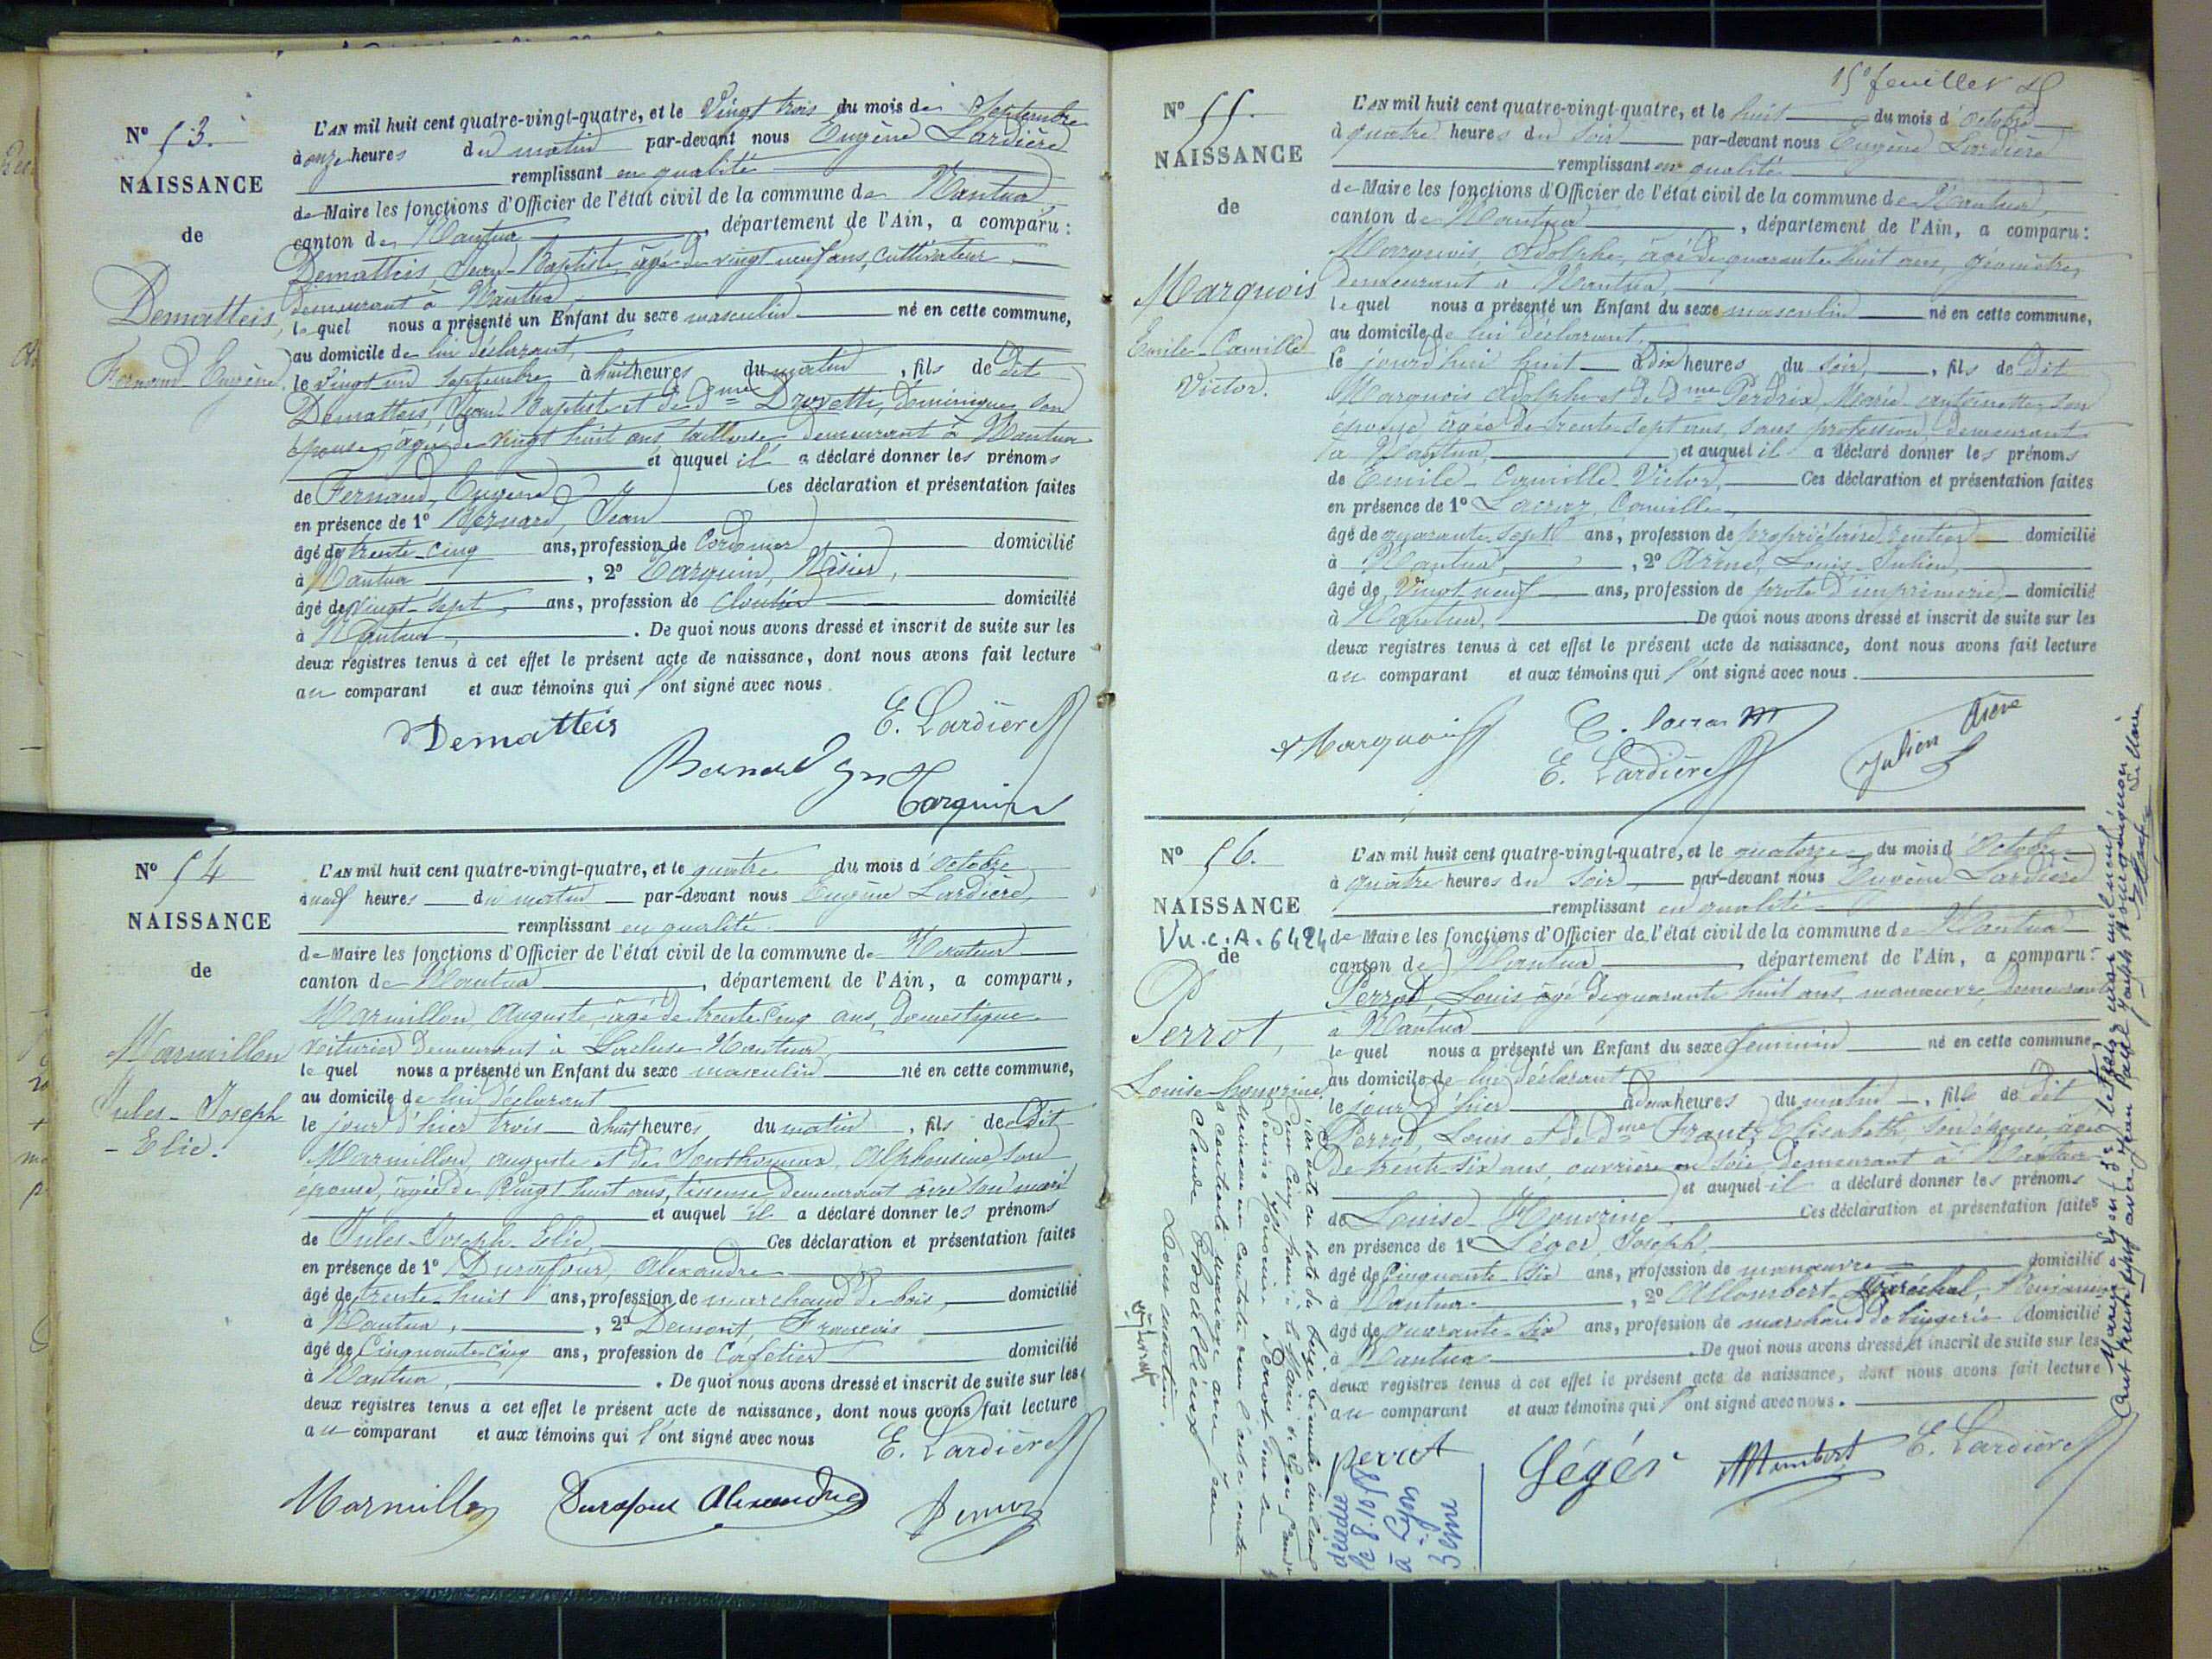 Nº 53.
NAISSANCE
de
Dematteis,
Fernand Eugène
L'AN mil huit cent quatre-vingt-quatre, et le Vingt trois du mois de Septembre
à onze heures du matin par-devant nous Eugène Lardière
remplissant en qualité
de Maire les fonctions d'Officier de l'état civil de la commune de Nantua,
canton de Nantua, département de l'Ain, a comparu :
Dematteis, Jean-Baptiste, âgé de vingt-neuf ans, cultivateur,
demeurant à Nantua,
lequel nous a présenté un Enfant du sexe masculin né en cette commune,
au domicile de lui déclarant,
le Vingt un Septembre à huit heures du matin, fils de dit
Dematteis, Jean Baptiste et de dme Drovetti, Dominique, son
épouse, âgée de vingt huit ans, tailleuse demeurant à Nantua
et auquel il a déclaré donner les prénoms
de Fernand, Eugène Ces déclaration et présentation faites
en présence de 1º Bernard, Jean
âgé de trente-cinq ans, profession de Cordonnier domicilié
à Nantua, 2º Tarquin, Nisier,
âgé de vingt-sept ans, profession de cloutier domicilié
à Nantua. De quoi nous avons dressé et inscrit de suite sur les
deux registres tenus à cet effet le présent acte de naissance, dont nous avons fait lecture
au comparant et aux témoins qui l'ont signé avec nous
Dematteis E. Lardière
Bernard Jn Tarquin
Nº 54
NAISSANCE
de
Marmillon
Jules-Joseph
-Elie.
L'AN mil huit cent quatre-vingt-quatre, et le quatre du mois d'octobre
à neuf heures du matin par-devant nous Eugène Lardière,
remplissant en qualité
de Maire les fonctions d'Officier de l'état civil de la commune de Nantua
canton de Nantua, département de l'Ain, a comparu,
Marmillon, Auguste, âgé de trente-cinq ans, Domestique
voiturier demeurant à Nantua,
lequel nous a présenté un Enfant du sexe masculin né en cette commune,
au domicile de lui déclarant
le jour d'hier trois à huit heures du matin, fils de dit
Marmillon, auguste et de Alphonsine, son
épouse, âgée de Vingt huit ans, tisseuse demeurant avec son mari
et auquel il a déclaré donner les prénoms
de Jules-Joseph-Elie, Ces déclaration et présentation faites
en présence de 1º Durafour, Alexandre
âgé de trente-huit ans, profession de marchand de bois, domicilié
à Nantua, 2º Demont, François
âgé de Cinquante-cinq ans, profession de Cafetier domicilié
à Nantua, . De quoi nous avons dressé et inscrit de suite sur les
deux registres tenus à cet effet le présent acte de naissance, dont nous avons fait lecture
au comparant et aux témoins qui l'ont signé avec nous
E. Lardière
Marmillon Durafour Alexandre
15e feuillet
Nº 55.
NAISSANCE
de
Marquois
Emile-Camille
Victor.
L'AN mil huit cent quatre-vingt-quatre, et le huit du mois d'octobre
à quatre heures du soir par-devant nous Eugène Lardière
remplissant en qualité
de Maire les fonctions d'Officier de l'état civil de la commune de Nantua,
canton de Nantua, département de l'Ain, a comparu :
Marquois, Adolphe, âgé de quarante huit ans, géomètre,
demeurant à Nantua,
lequel nous a présenté un Enfant du sexe masculin né en cette commune,
au domicile de lui déclarant,
le jourd'hui huit à dix heures du soir, fils de dit
Marquois Adolphe et de dme Perdrix, Marie antoinette, son
épouse âgée de trente-sept ans, sans profession, demeurant
à Nantua, et auquel il a déclaré donner les prénoms
de Emile-Camille-Victor, Ces déclaration et présentation faites
en présence de 1º Lacroz, Camille,
âgé de quarante-sept ans, profession de propriétaire rentier domicilié
à Nantua, 2º Arène, Louis-Julien,
âgé de Vingt neuf ans, profession de prote d'imprimerie domicilié
à Nantua, De quoi nous avons dressé et inscrit de suite sur les
deux registres tenus à cet effet le présent acte de naissance, dont nous avons fait lecture
au comparant et aux témoins qui l'ont signé avec nous.
Marquois
E. Lardière Julien Arène
Nº 56.
NAISSANCE
Vu. C.A. 6424
de
Perrot,
Louise-honorine
L'AN mil huit cent quatre-vingt-quatre, et le quatorze du mois d'Octobre
à quatre heures du soir, par-devant nous Eugène Lardière
remplissant en qualité
de Maire les fonctions d'Officier de l'état civil de la commune de Nantua
canton de Nantua, département de l'Ain, a comparu :
Perrot, Louis, âgé de quarante huit ans, manœuvre, Demeurant
à Nantua
lequel nous a présenté un Enfant du sexe féminin né en cette commune
au domicile de lui déclarant
le jour d'hier à deux heures du matin, fille de dit
Perrot, Louis et de dme Frantz, Elisabeth, son épouse, âgée
de trente six ans, ouvrière en soie, demeurant à Nantua
et auquel il a déclaré donner les prénoms
de Louise Honorine, Ces déclaration et présentation faites
en présence de 1º Léger, Joseph,
âgé de Cinquante-six ans, profession de manœuvre domicilié
à Nantua, 2º Allombert-Maréchal, Benjamin
âgé de quarante-six ans, profession de marchand de lingerie domicilié
à Nantua. De quoi nous avons dressé et inscrit de suite sur les
deux registres tenus à cet effet le présent acte de naissance, dont nous avons fait lecture
au comparant et aux témoins qui l'ont signé avec nous.
perrot Léger Allombert E. Lardière
Louise Honorine Perrot
a contracté mariage avec Jean
Claude
décédée
le 8.10.58
à Lyon
3eme